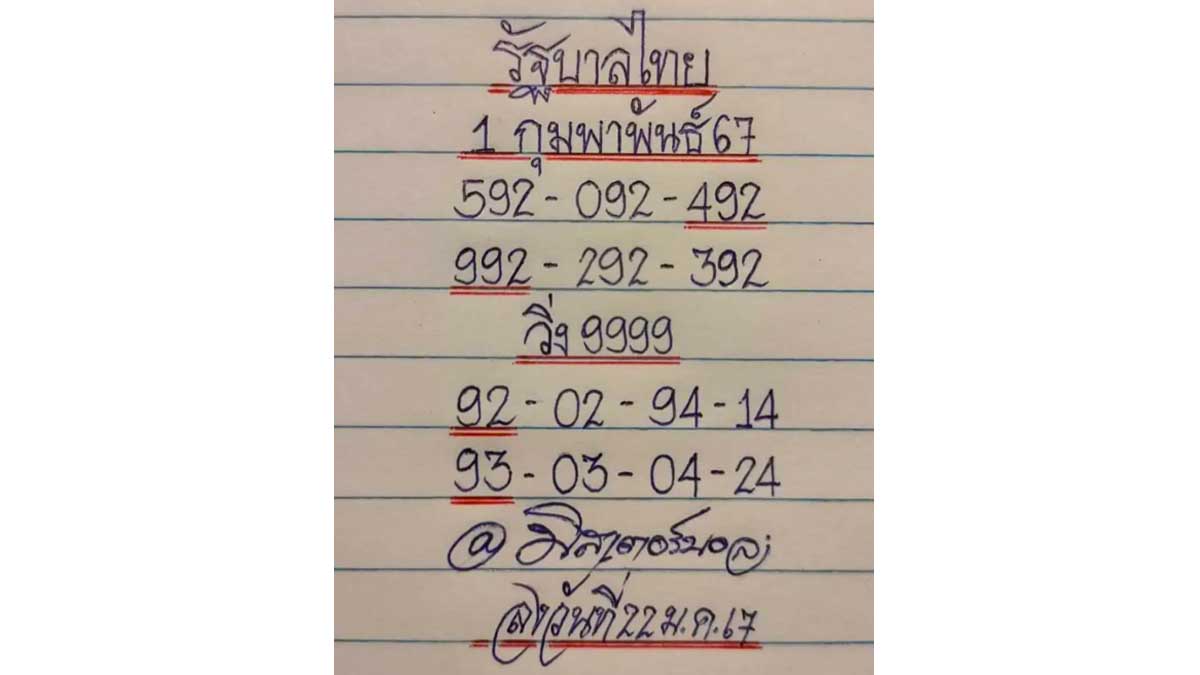 รัฐบาลไทย
1 กุมพาพันธ์ 67
592 - 092 - 492
992 - 292 - 392
วิ่ง 9999
92 - 02 - 94 - 14
93 - 03 - 04 - 24
@ มิสเตอร์บอล
ลงวันที่ 22 ม.ค. 67